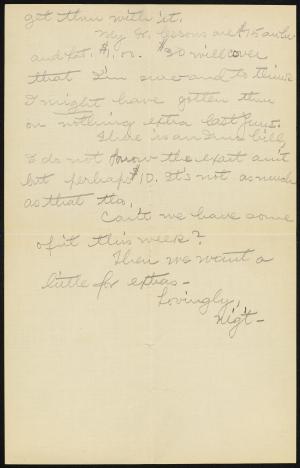 get thru with it.
My Dr. lessons are $15 an hr
and Lat. $1. or. $30 will cover
that I'm sure and to think
I might have gotten thru
on nothing extra last year.
There is an Inn bill,
I do not know the exact am't
but perhaps $10. It's not as much
as that tho.
Can't we have some
of it this week?
Then we want a
little for extras—
Lovingly,